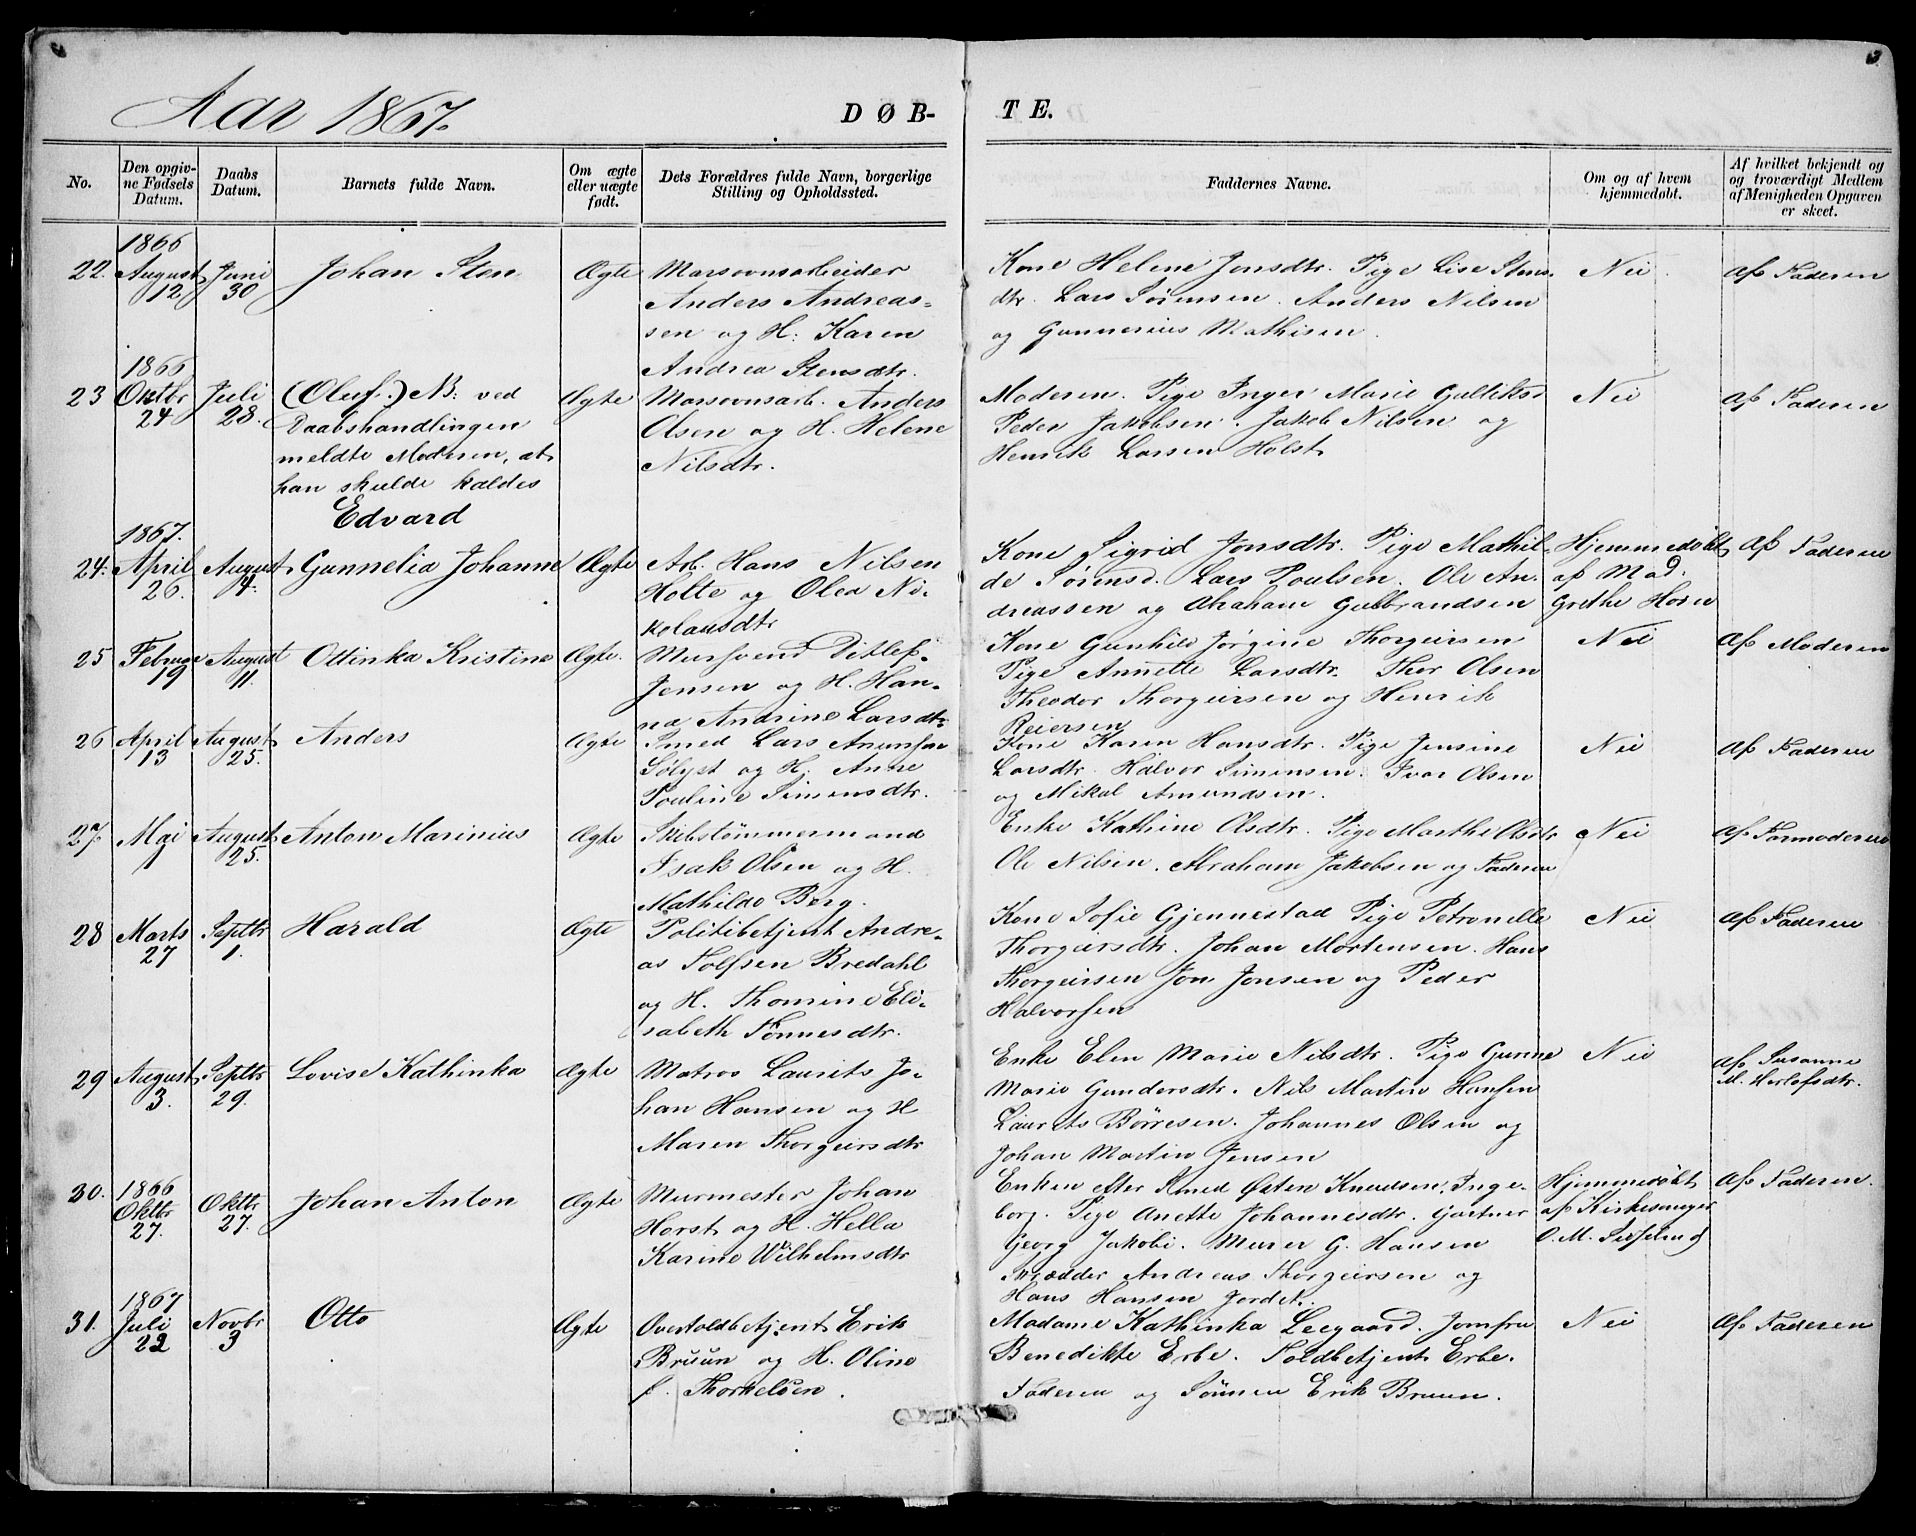 Aar 1867.
DØB-
TE.
No.
Den opgiv-
ne Fødsels
Datum.
Daabs
Datum.
Barnets fulde Navn.
Om ægte
eller uægte
født.
Dets Forældres fulde Navn, borgerlige
Stilling og Opholdssted.
Faddernes Navne.
Om og af hvem
hjemmedøbt.
Af hvilket bekjendt og
og troværdigt Medlem
af Menigheden Opgaven
er skeet.
1866
22. August 12
Juni 30
Johan Sten
Ægte
Marsovnsarbeider
Anders Andreas-
sen og H: Karen
Andrea Stensdtr.
Kone Helene Jonsdtr. Pige Lise Stens-
dtr. Lars Sørensen. Anders Nilsen
og Gunnerius Mathisen.
Nei
Af Faderen
1866
23 Oktbr 24
Juli 28.
(Oluf.) NB: ved
Daabshandlingen
meldte Moderen, at
han skulde kaldes
Edvard
Ægte
Marsovnsarb. Anders
Olsen og H. Helene
Nilsdtr.
Moderen. Pige Inger Marie Gulliksd
Peder Jakobsen. Jakob Nilsen og
Henrik Larsen Holst
Nei
Af Faderen
1867.
24. April 26.
August 4.
Gunnelia Johanne
Ægte
Arb. Hans Nilsen
Holte og Olea Ni-
kolausdtr
Kone Sigrid Jonsdtr. Pige Mathil-
de Sørensd. Lars Poulsen. Ole An-
dreassen og Abraham Gulbrandsen
Hjemmedøbt
af Mad.
Grethe Horn
Af Faderen
25 Februar 19
August 11.
Ottinka Kristine
Ægte.
Mursvend Ditlef
Jensen og H. Han-
na Andrine Larsdtr.
Kone Gunhild Jørgine Thorgeirsen
Pige Annette Larsdtr. Thor Olsen
Theodor Thorgeirsen og Henrik
Reiersen
Nei
Af Moderen
26 April 13
August 25.
Anders
Ægte
Smed Lars Amundsen
Sølyst og H. Anne
Pouline Simensdtr.
Kone Karen Hansdtr. Pige Jensine
Larsdtr. Halvor Simensen. Ivar Olsen
og Mikal Amundsen.
Nei
Af Faderen
27. Mai 1
August 25.
Anton Marinius
Ægte
Skibstømmermand
Isak Olsen og H.
Mathilde Berg.
Enke Kathrine Olsdtr. Pige Marthe Olsdtr
Ole Nilsen. Abraham Jakobsen og Faderen
Nei
Af Farmoderen
28 Marts 27
Septbr 1.
Harald
Ægte
Politibetjent Andre-
as Tolfsen Bredahl
og H. Thomine Eli-
sabeth Tønnesdtr.
Kone Sofie Gjennestad Pige Petronelle
Thorgeirsdtr. Johan Mortensen. Hans
Thorgeirsen Jon Jonsen og Peder
Halvorsen
Nei
Af Faderen
29 August 3.
Septbr 29.
Lovise Kathinka
Ægte
Matros Laurits Jo-
han Hansen og H
Maren Thorgeirsdtr
Enke Elen Marie Nilsdtr. Pige Gunne
Marie Gundersdtr. Nils Martin Hansen
Laurits Børresen. Johannes Olsen og
Johan Martin Jensen
Nei
Af Susanne
M. Herlofsdtr.
1866
30. Oktbr 27.
Oktbr 27.
Johan Anton
Ægte
Murmester Johan
Horst og H. Hella
Karine Wilhelmsdtr
Enken efter Smed Østen Knudsen, Inge-
borg. Pige Anette Johannesdtr. Gartner
Georg Jakobi. Murer G. Hansen
Skrædder Andreas Thorgeirsen og
Hans Hansen Jordet.
Hjemmedøbt
af Kirkesanger
O. M.
Af Faderen.
1867
31. Juli 22
Novbr 3
Otto
Ægte
Overtoldbetjent Erik
Bruun og H. Oline
f. Thorkelsen.
Madame Kathinka Leegaard. Jomfru
Benedikte Erbe. Toldbetjent Erbe.
Faderen og Sønnen Erik Bruun.
Nei
Af Faderen